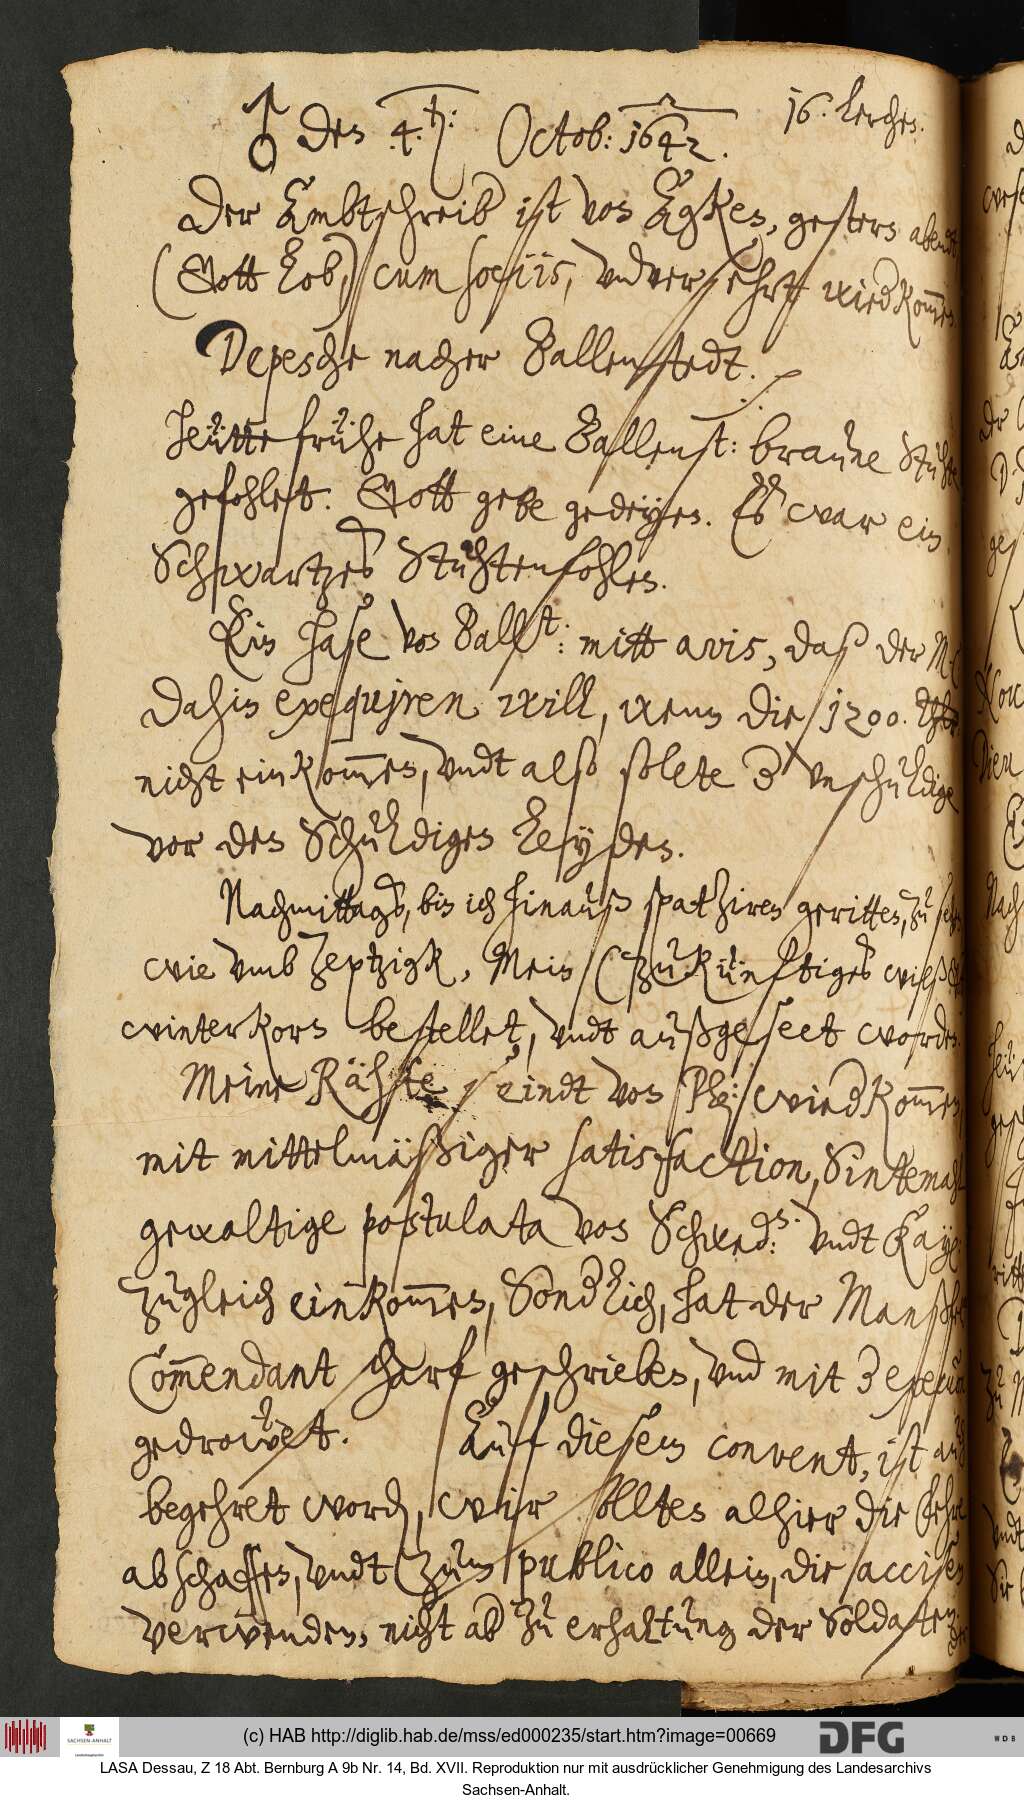 ♂ den 4.ten: Octob: 1642.
16. Lerchen.
Der Ambtschreib ist von Egkeln, gestern abendt
(Gott Lob,) cum sociis, vndversehrt wied kom̅en.
Depesche nacher Ballenstedt.
Heütte frühe hat eine Ballenst: braune Stuhte
gefohlet. Gott gebe gedeyen. Es war ein
Schwartzes Stuhtenfohlen.
Ein Hase von Ballst: mitt avis, daß der
dahin exequiren will, wenn die 1200. Thlr
nicht einkom̅en, vndt also solte 3 vnschuldige
vor den Schuldigen leyden.
Nachmittags, bin ich hinauß spatziren geritten, zu sehen
wie vmb Zeptzigk, Mein (zukünftiges
winterkorn bestellet, vndt außgeseet worden.
Meine Rähte seindt von wied kom̅en,
mit mittelmäßiger satisfaction, Sintemahl
gewaltige postulata von Schwed:n. vndt Kays:
zugleich einkom̅en, Sondlich, hat der Manßfeld
Com̅endant scharf geschrieben, vnd mit 3 execution
gedrowet. Auf diesem convent, ist auch
begehret word, wir sollten alhier die
abschaffen, vndt zum publico allein, die accisen
verwenden, nicht ab zu erhaltung der Soldaten.
(c) HAB http://diglib.hab.de/mss/ed000235/start.htm?image=00669
SACHSEN-ANHALT
DFG
WDB
LASA Dessau, Z 18 Abt. Bernburg A 9b Nr. 14, Bd. XVII. Reproduktion nur mit ausdrücklicher Genehmigung des Landesarchivs
Sachsen-Anhalt.